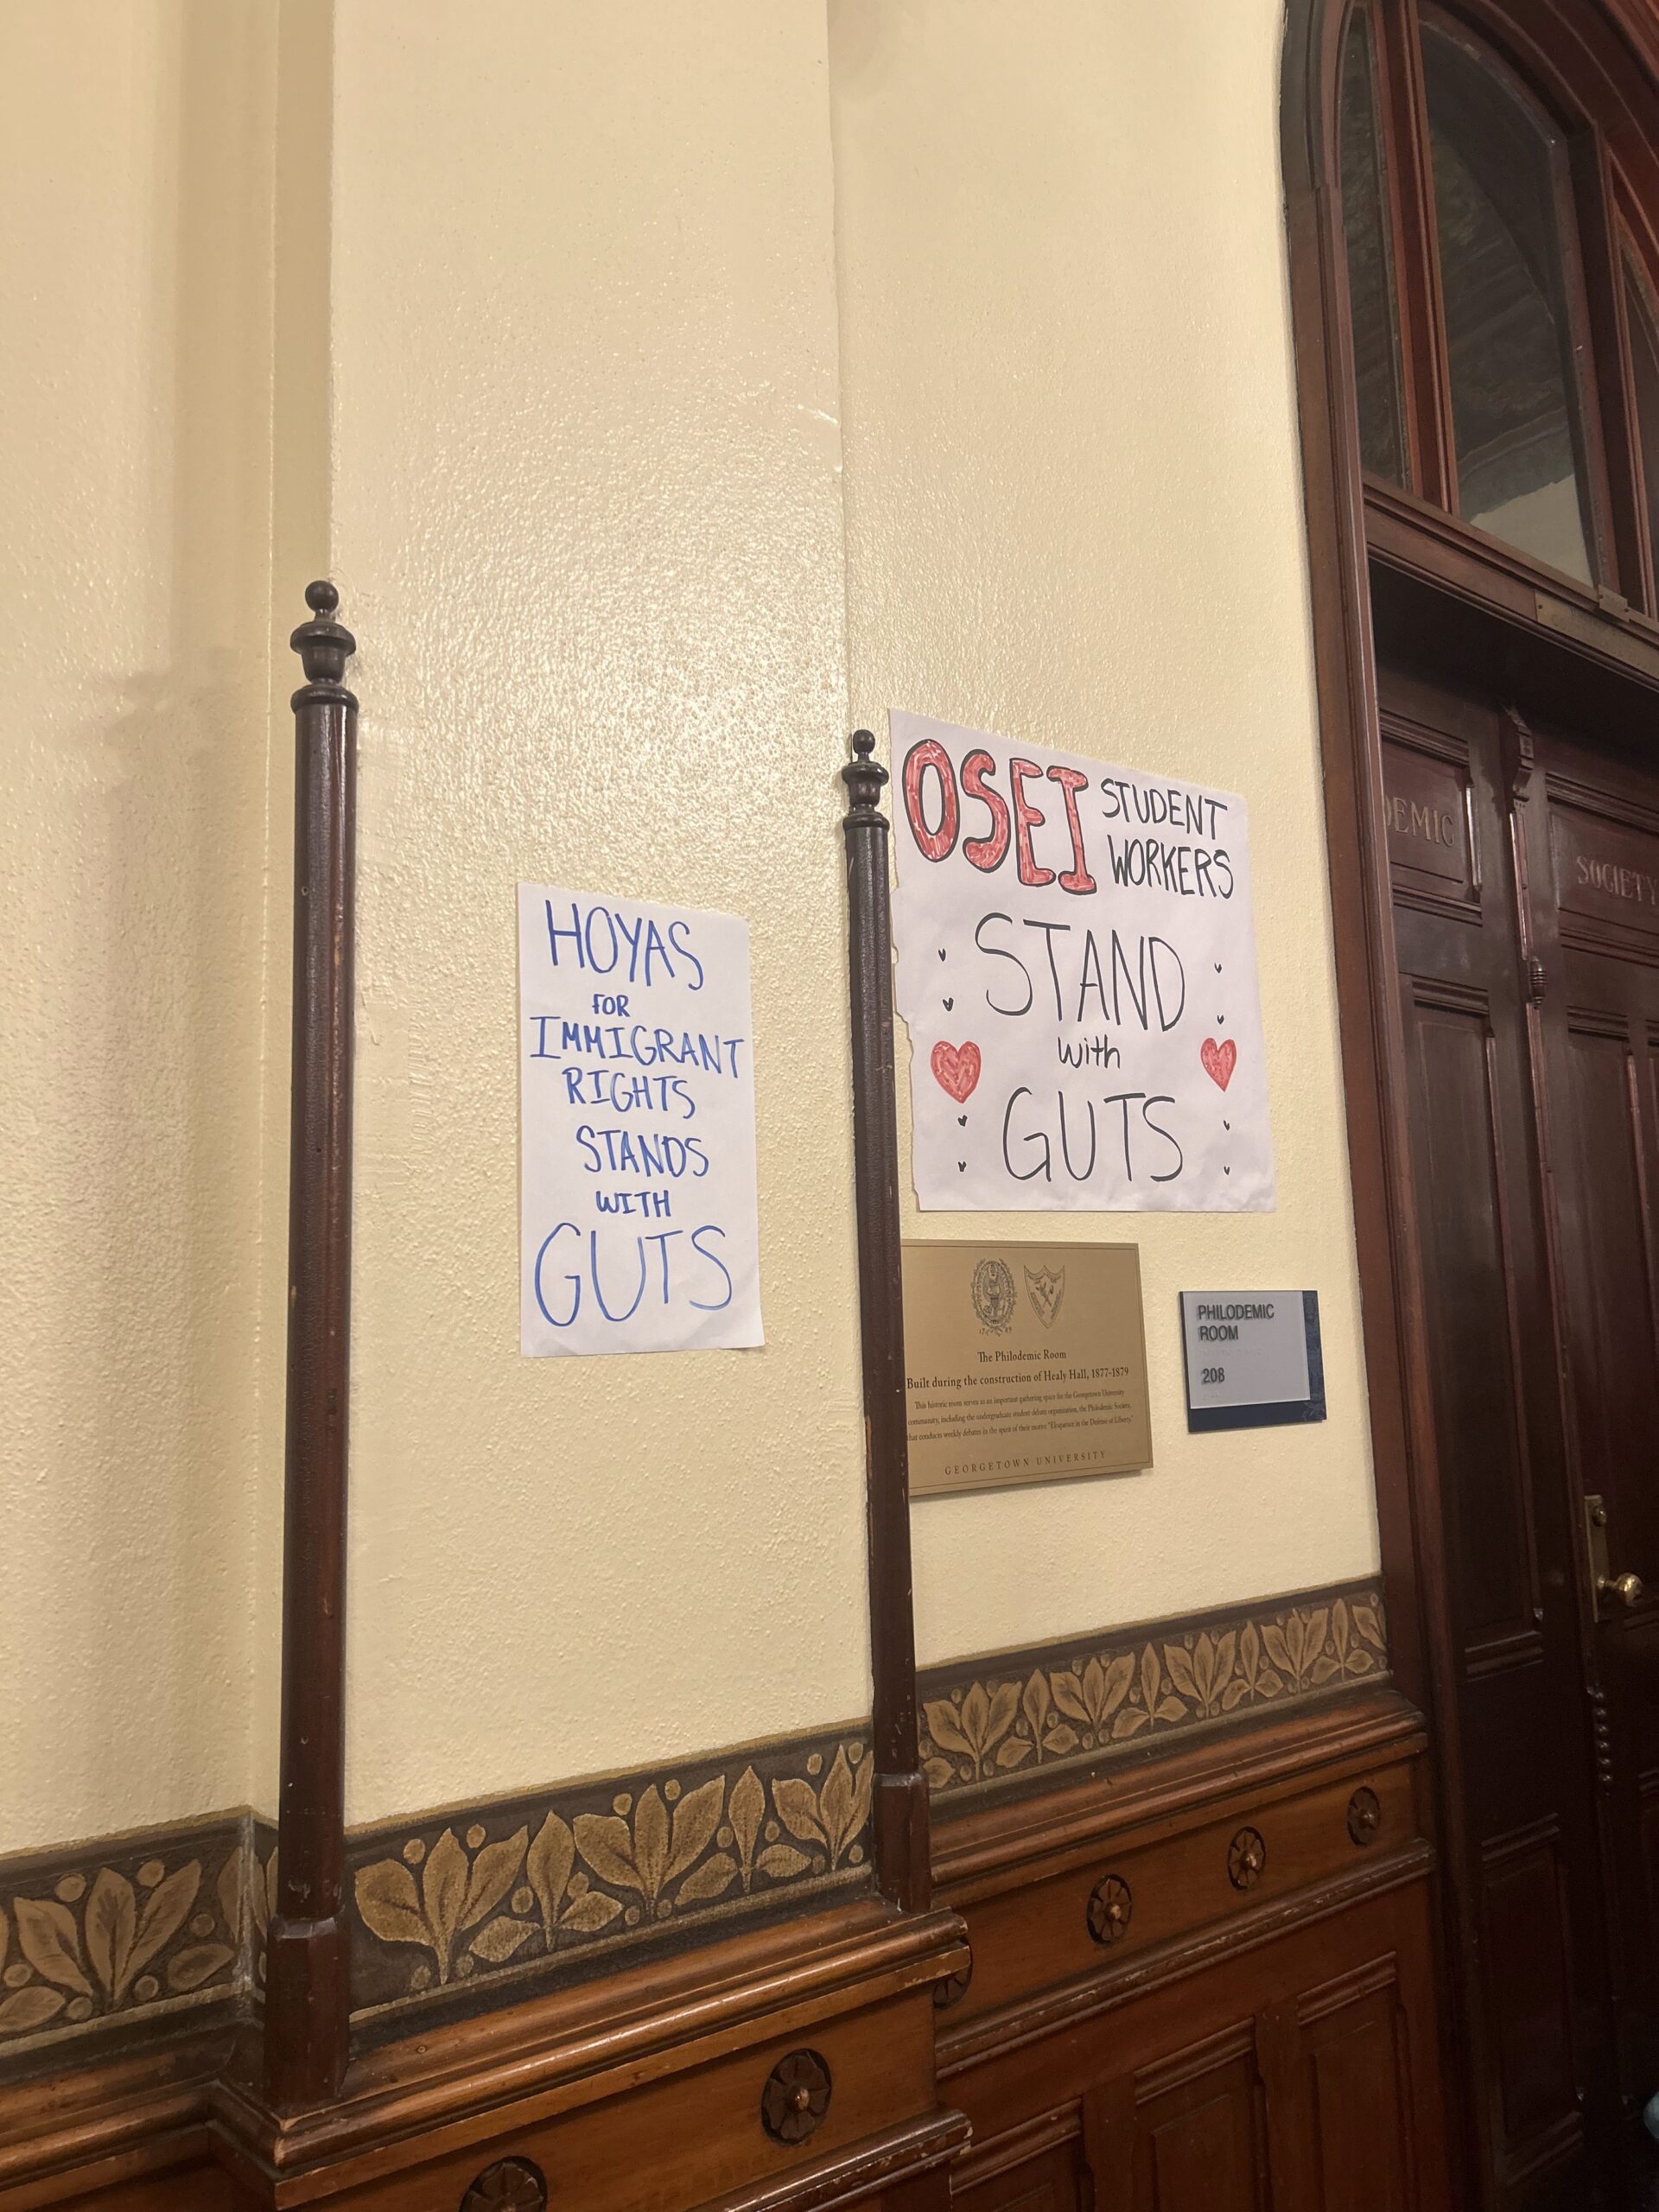 HOYAS
FOR
IMMIGRANT
RIGHTS
STANDS
WITH
GUTS
OSEI STUDENT
WORKERS
STAND
with
GUTS
The Philodemic Room
Built during the construction of Healy Hall, 1877-1879
This historic room serves as an important gathering space for the Georgetown University
community, including the undergraduate student debate organization, the Philodemic Society,
that conducts weekly debates in the spirit of their motto: "Eloquence in the Defense of Liberty."
GEORGETOWN UNIVERSITY
PHILODEMIC
ROOM
208
DEMIC
SOCIETY